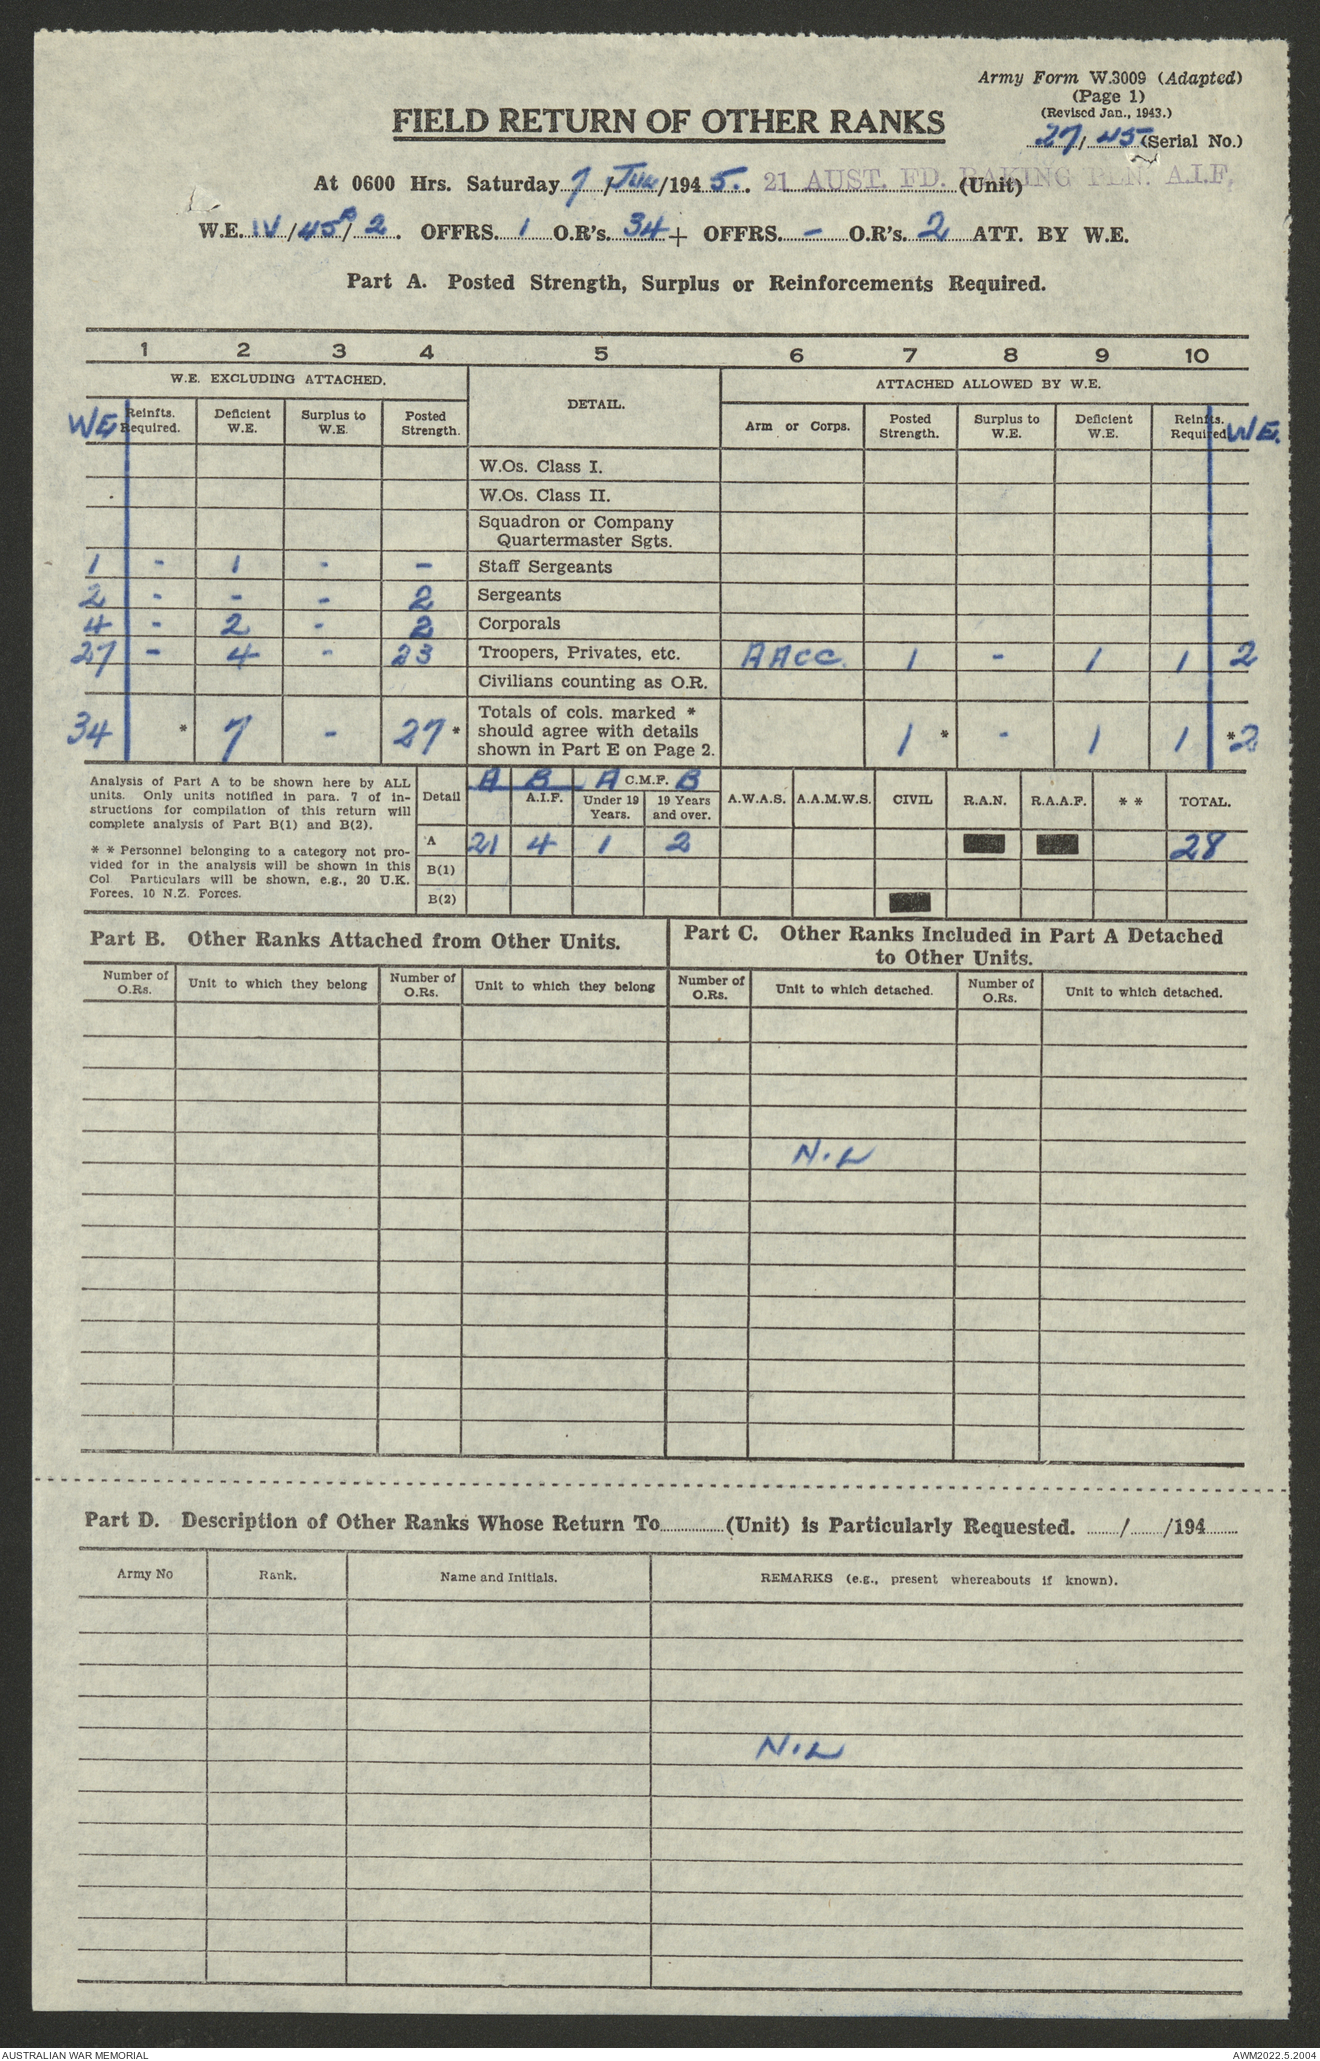 Army Form W.3009 (Adapted)
(Page 1)
(Revised Jan., 1943.)
FIELD RETURN OF OTHER RANKS
27/45 (Serial No.)
At 0600 Hrs. Saturday 7 / /1945. 21 AUST. FD. BAKING PLN. A.I.F. (Unit)
W.E. IV/45B/2. OFFRS. 1 O.R's. 34 + OFFRS. - O.R's. 2 ATT. BY W.E.
Part A. Posted Strength, Surplus or Reinforcements Required.
1 2 3 4 5 6 7 8 9 10
W.E. EXCLUDING ATTACHED. DETAIL. ATTACHED ALLOWED BY W.E.
WE Reinfts. Required. Deficient W.E. Surplus to W.E. Posted Strength. Arm or Corps. Posted Strength. Surplus to W.E. Deficient W.E. Reinfts. Required WE.
W.Os. Class I.
W.Os. Class II.
Squadron or Company
Quartermaster Sgts.
1 - 1 - - Staff Sergeants
2 - - - 2 Sergeants
4 - 2 - 2 Corporals
27 - 4 - 23 Troopers, Privates, etc. AACC. 1 - 1 1 2
Civilians counting as O.R.
34 * 7 - 27* Totals of cols. marked * should agree with details shown in Part E on Page 2. 1 * - 1 1 *2
Analysis of Part A to be shown here by ALL
units. Only units notified in para. 7 of in-
structions for compilation of this return will
complete analysis of Part B(1) and B(2).
* * Personnel belonging to a category not pro-
vided for in the analysis will be shown in this
Col Particulars will be shown, e.g., 20 U.K.
Forces, 10 N.Z. Forces.
A B A C.M.F. B
Detail A.I.F. Under 19 Years. 19 Years and over. A.W.A.S. A.A.M.W.S. CIVIL R.A.N. R.A.A.F. * * TOTAL.
A 21 4 1 2 28
B(1)
B(2)
Part B. Other Ranks Attached from Other Units.
Part C. Other Ranks Included in Part A Detached
to Other Units.
Number of O.Rs. Unit to which they belong Number of O.Rs. Unit to which they belong Number of O.Rs. Unit to which detached. Number of O.Rs. Unit to which detached.
NIL
Part D. Description of Other Ranks Whose Return To............(Unit) is Particularly Requested. ....../....../194......
Army No Rank. Name and Initials. REMARKS (e.g., present whereabouts if known).
NIL
AUSTRALIAN WAR MEMORIAL AWM2022.5.2004